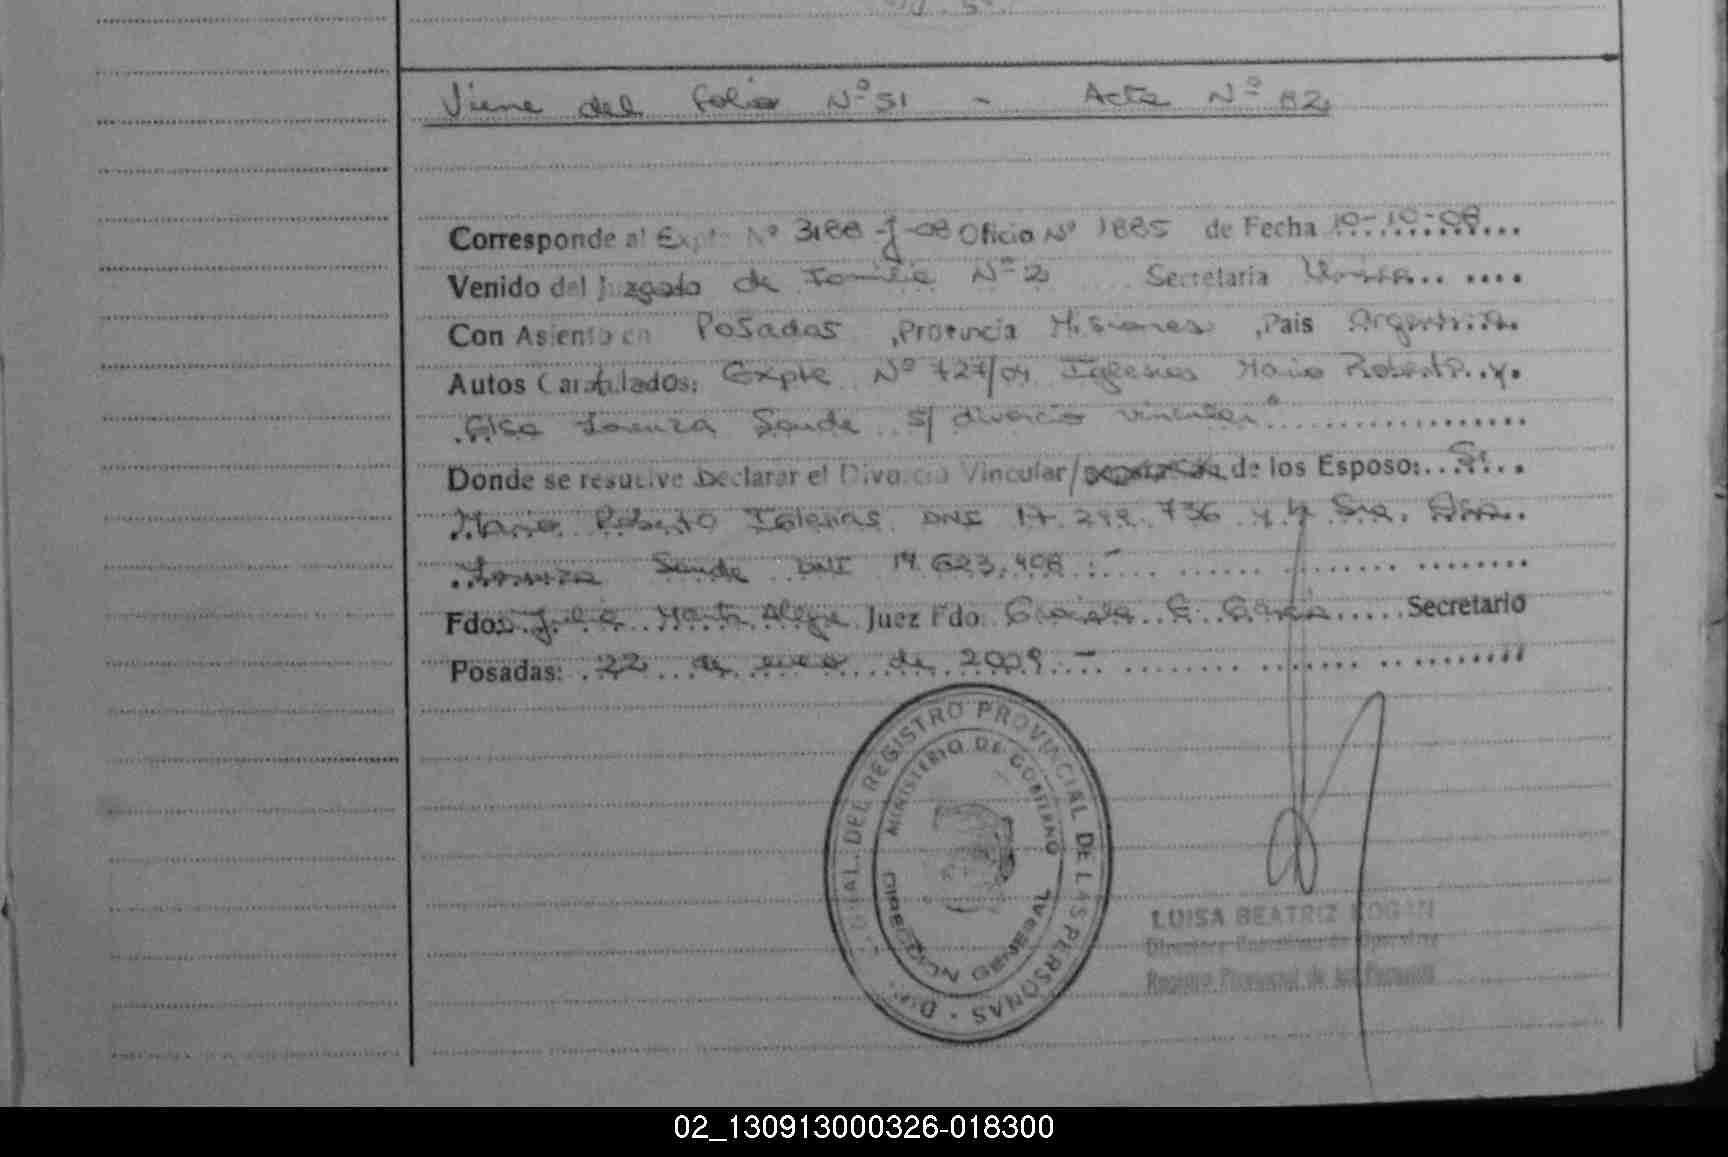 Viene del folio Nº 51 - Acta Nº 82
Corresponde al Expte Nº 3188-J-08 Oficio Nº 1885 de Fecha 10-10-08
Venido del Juzgado de Familia Nº 2 Secretaria
Con Asiento en Posadas, Provincia Misiones, Pais Argentina
Autos Caratulados: Expte Nº 727/04 Iglesias Mario Roberto y
Elsa Lorenza Sande s/ divorcio vincular"
Donde se resuelve Declarar el Divorcio Vincular/ de los Esposo: Sr.
Mario Roberto Iglesias DNI 17.299.736 y la Sra. Elsa
Lorenza Sande DNI 14.623.408.-
Fdo: Julia Marta Alegre Juez Fdo. Graciela E. Garcia Secretario
Posadas: 22 de enero de 2009.-
DEL REGISTRO PROVINCIAL DE LAS PERSONAS
MINISTERIO DE GOBIERNO
DIRECCION GENERAL
LUISA BEATRIZ KOGAN
Registro Provincial de las Personas
02_130913000326-018300